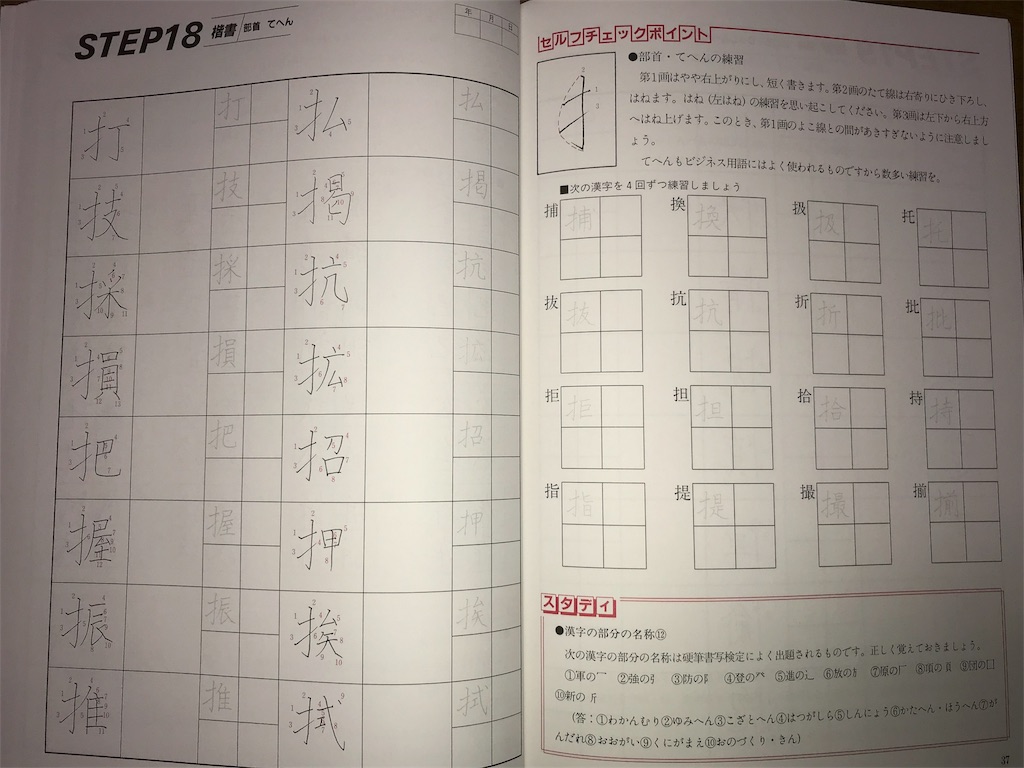 STEP18 楷書 部首 てへん
年 月 日
打 打 払 払
技 技 掲 掲
採 採 抗 抗
損 損 拡 拡
把 把 招 招
握 握 押 押
振 振 挨 挨
推 推 拭 拭
セルフチェックポイント
●部首・てへんの練習
第1画はやや右上がりにし、短く書きます。第2画のたて線は右寄りにひき下ろし、
はねます。はね(左はね)の練習を思い起こしてください。第3画は左下から右上方
へはね上げます。このとき、第1画のよこ線との間があきすぎないように注意しまし
ょう。
てへんもビジネス用語にはよく使われるものですから数多い練習を。
■次の漢字を4回ずつ練習しましょう
捕 捕 換 換 扱 扱 托 托
抜 抜 抗 抗 折 折 批 批
拒 拒 担 担 拾 拾 持 持
指 指 提 提 撮 撮 揃 揃
スタディ
●漢字の部分の名称⑫
次の漢字の部分の名称は硬筆書写検定によく出題されるものです。正しく覚えておきましょう。
①軍の冖 ②強の弓 ③防の阝 ④登の癶 ⑤進の辶 ⑥放の方 ⑦原の厂 ⑧項の頁 ⑨団の囗
⑩新の斤
(答:①わかんむり②ゆみへん③こざとへん④はつがしら⑤しんにょう⑥かたへん・ほうへん⑦が
んだれ⑧おおがい⑨くにがまえ⑩おのづくり・きん)
37